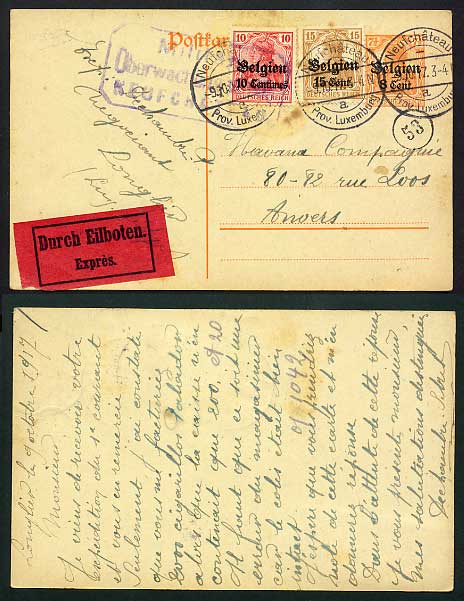 Postkar
Oberwach
NEUFCH
10 10
Belgien
10 Centimes
DEUTSCHES REICH
15 15
Belgien
15 Cent.
Belgien
8 Cent.
Neufchâteau
Prov. Luxemburg
Neufchâteau
a
Prov. Luxemburg
Neufchâteau
7. 3-4
a
Prov. Luxemburg
53
Longlier
Havana Compagnie
80-82 rue Loos
Anvers
Durch Eilboten.
Exprès.
Longlier le 9 octobre 1917
Monsieur,
Je viens de recevoir votre
expédition du 1er courant
et vous en remercie
Seulement j'ai constaté
que vous me facturez
2000 cigarillos
alors que la caisse n'en
contenait que 200. 920
Il faut que ce soit une
erreur du magasinier
car le colis était bien
intact 1049
J'espère que vous prendrez
note de cette carte et m'en
donnerez réponse
Dans l'attente de cette réponse
je vous présente, monsieur,
mes salutations distinguées